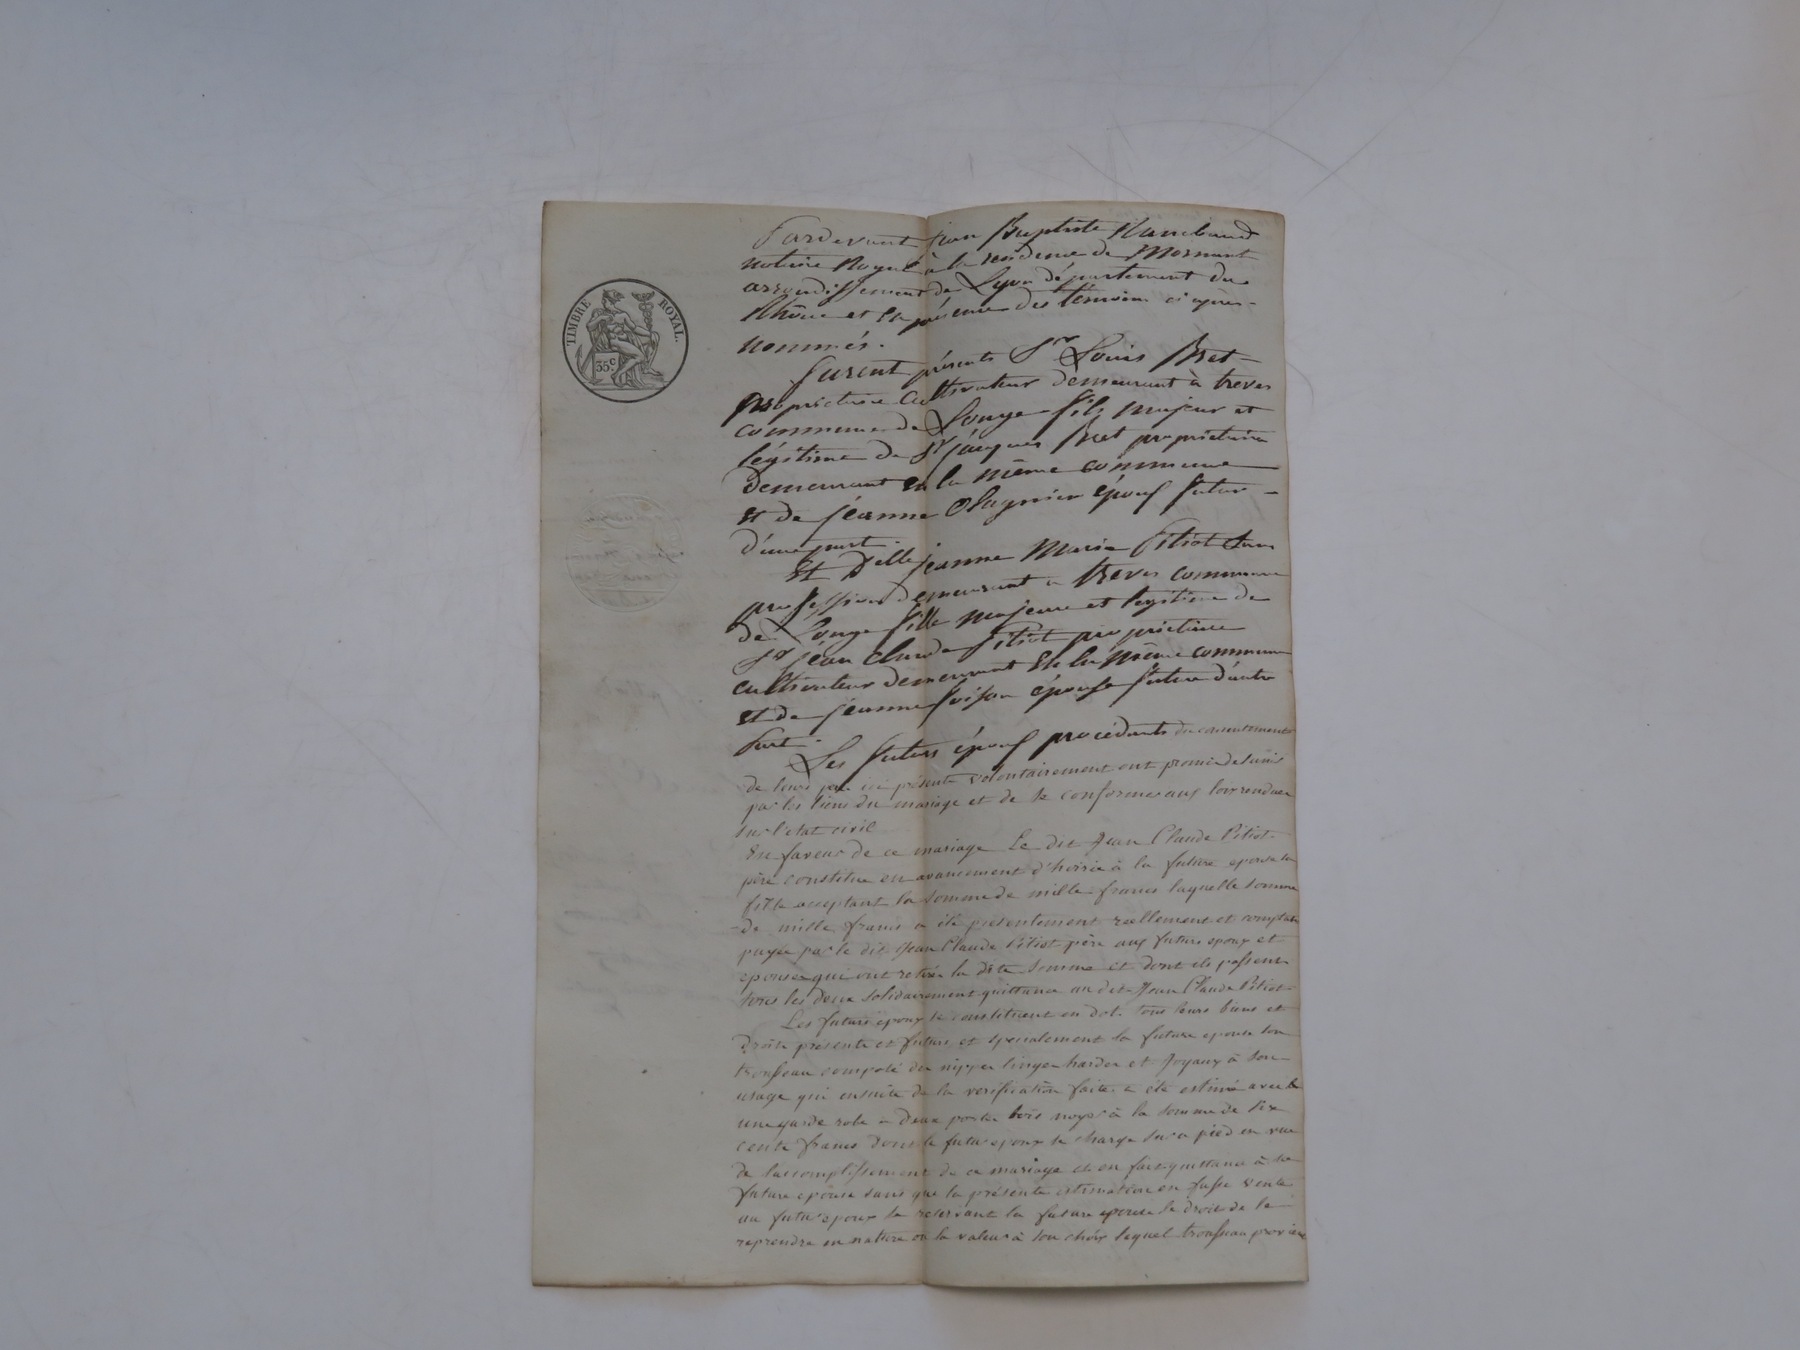 TIMBRE ROYAL.
35 c
Pardevant Jean Baptiste
notaire Royal à la résidence de Mornant
arrondissement de Lyon département du
Rhône et En présence des témoins ci après
nommés.
furent présents Sr Louis Bret
propriétaire Cultivateur demeurant à treves
commune de Longe fils majeur et
légitime de Sr jacques Bret propriétaire
demeurant en la même commune
Et de jeanne Olagnier épouf futur
d'une part.
Et Dlle jeanne Marie Pitiot sans
profession demeurant a treves commune
de Longe fille majeure et legitime de
Sr jean claude Pitiot propriétaire
cultivateur demeurant En la même commune
et de jeanne épouse future d'autre
Part.
Les futurs épouf procédants du consentement
de leurs ici présents volontairement ont promis de s'unir
par les liens du mariage et de se conformer aux loix rendues
sur l'etat civil
En faveur de ce mariage Le dit Jean Claude Pitiot
père constitue en avancement d'hoirie à la future epouse sa
fille acceptant la somme de mille francs laquelle somme
de mille francs a été présentement réellement et comptant
payée par le dit Jean Claude Pitiot père aux futurs epoux et
epouse qui ont retiré la dite somme et dont ils passent
tous les deux solidairement quittance au dit Jean Claude Pitiot
Les futurs epoux se constituent en dot tous leurs biens et
droits presents et futurs et specialement la future epouse son
trousseau composé de nippes linges hardes et Joyaux à son
usage qui ensuite de la verification faite a été estimé avec
une garde robe a deux portes bois noyer à la somme de six
cents francs dont le futur epoux se charge sur a pied en vue
de l'accomplissement de ce mariage et en fait quittance à sa
future epouse sans que la présente estimation en fasse vente
au futur epoux se reservant la future epouse le droit de le
reprendre en nature ou la valeur à son choix lequel trousseau provient